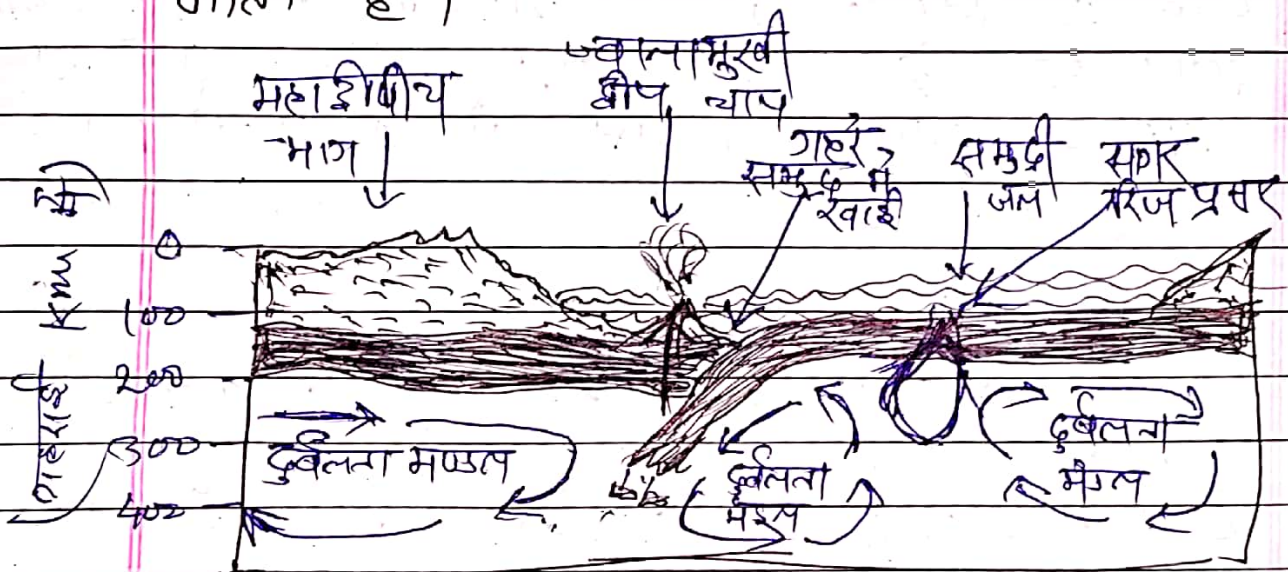 महाद्वीपीय
भाग
ज्वालामुखी
द्वीप चाप
गहरे
समुद्र में
खाई
समुद्री
जल
सागर
नितल प्रसार
गहराई Km में
0
100
200
300
400
दुर्बलता मण्डल
दुर्बलता
मंडल
दुर्बलता
मंडल